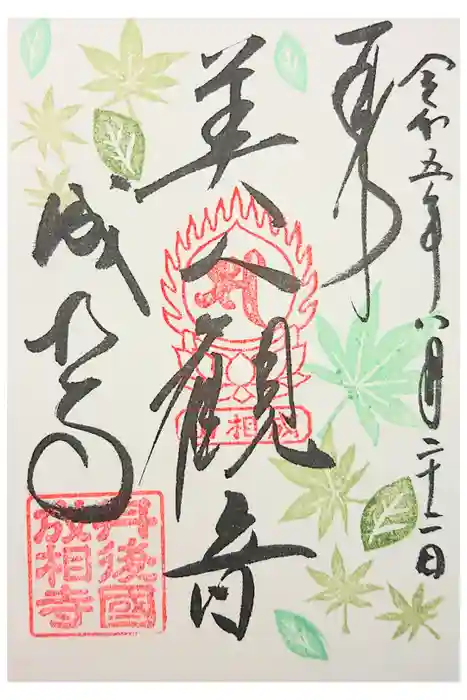 令和五年八月二十二日
奉拝
美人観音
成相寺
丹後國
成相寺